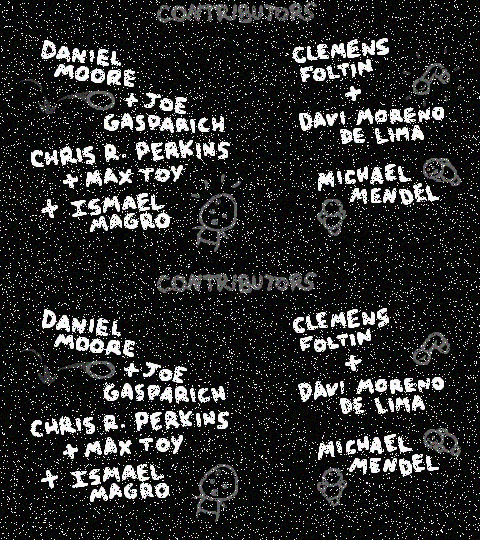 CONTRIBUTORS
DANIEL
MOORE
+ JOE
GASPARICH
CHRIS R. PERKINS
+ MAX TOY
+ ISMAEL
MAGRO
CLEMENS
FOLTIN
+
DAVI MORENO
DE LIMA
MICHAEL
MENDEL
CONTRIBUTORS
DANIEL
MOORE
+ JOE
GASPARICH
CHRIS R. PERKINS
+ MAX TOY
+ ISMAEL
MAGRO
CLEMENS
FOLTIN
+
DAVI MORENO
DE LIMA
MICHAEL
MENDEL